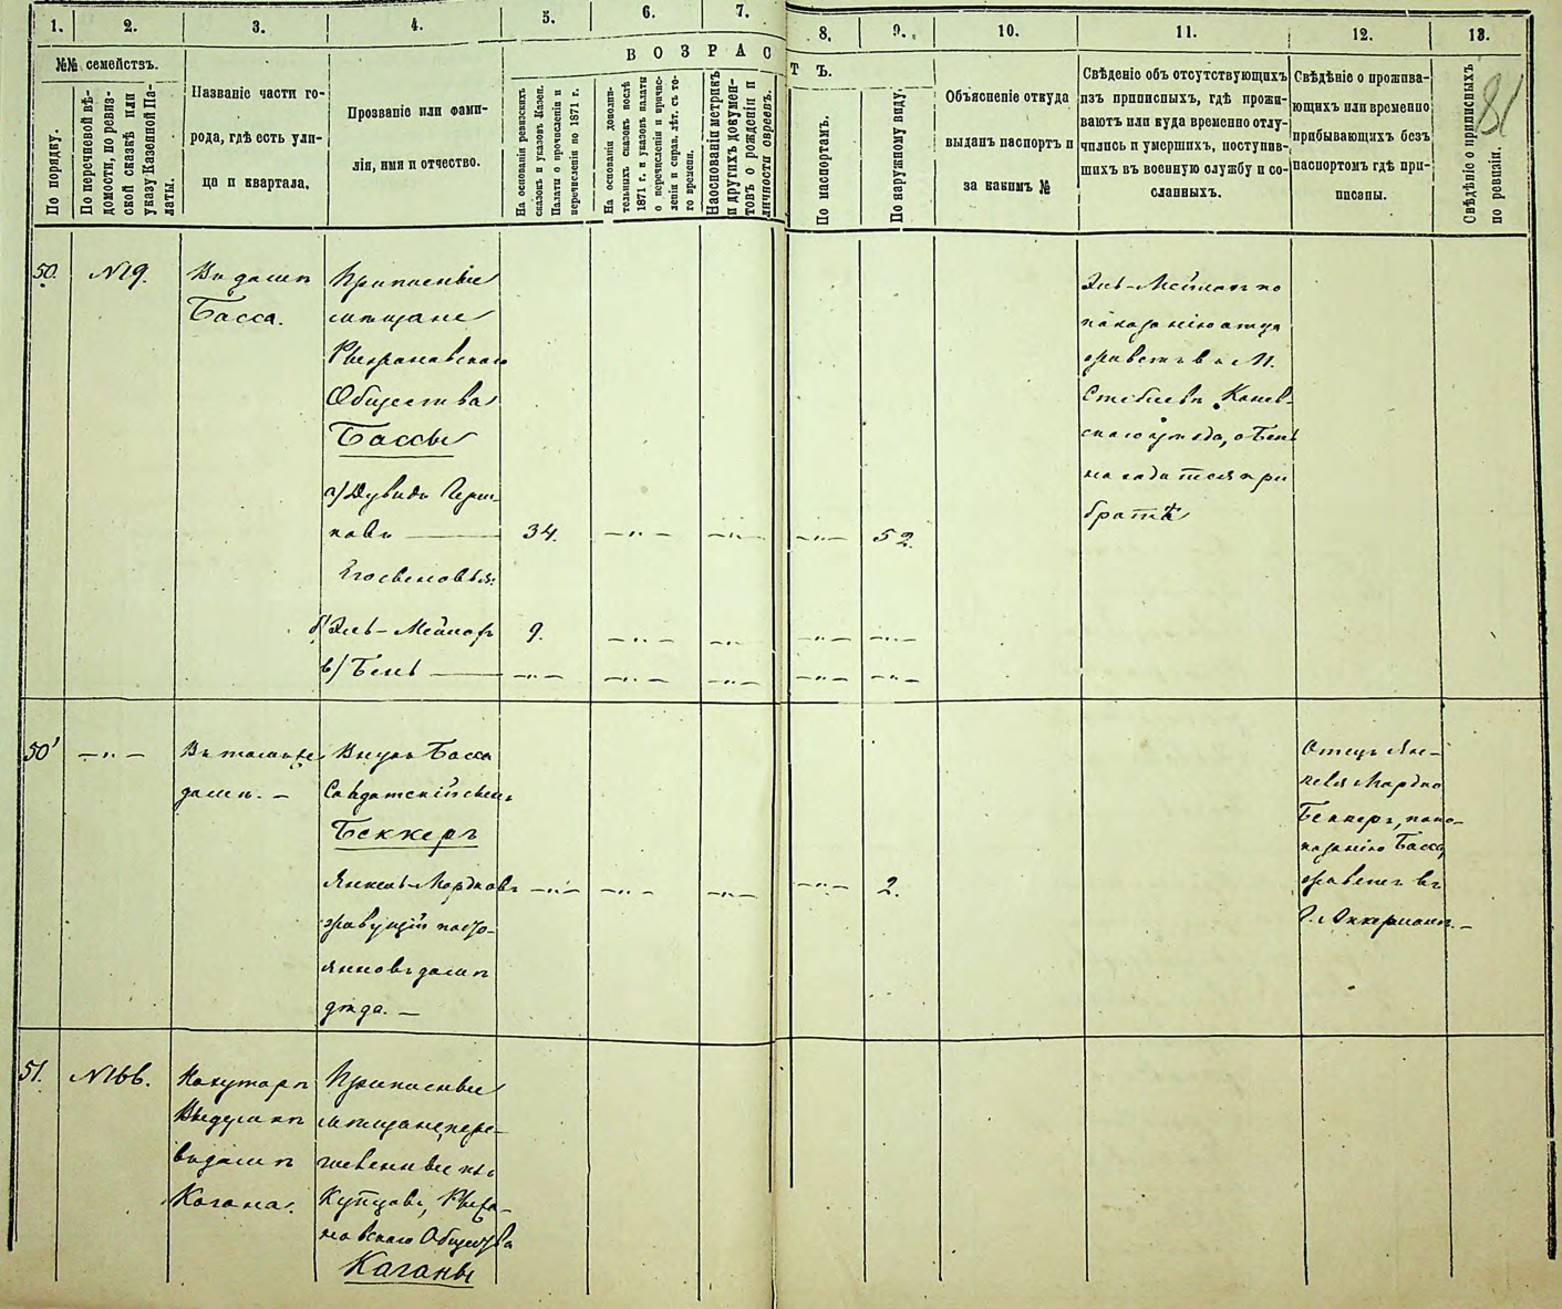 1. 2. 3. 4. 5. 6. 7. 8. 9. 10. 11. 12. 13.
№№ семействъ.
По порядку.
По перечневой вѣ-
домости, по ревиз-
ской сказкѣ или
указу Казенной Па-
латы.
Названіе части го-
рода, гдѣ есть ули-
ца и квартала.
Прозваніе или фами-
лія, имя и отчество.
ВОЗРАСТЪ.
На основаніи ревизскихъ
сказокъ и указовъ Казен.
Палаты о причисленіи и
перечисленіи по 1871 г.
На основаніи дополни-
тельныхъ сказокъ послѣ
1871 г. и указовъ палаты
о перечисленіи и причис-
леніи и справ. лѣт. съ то-
го времени.
На основаніи метрикъ
и другихъ докумен-
товъ о рожденіи и
личности евреевъ.
По паспортамъ.
По наружному виду.
Объясненіе откуда
выданъ паспортъ и
за какимъ №
Свѣденіе объ отсутствующихъ
изъ приписныхъ, гдѣ прожи-
ваютъ или куда временно отлу-
чились и умершихъ, поступив-
шихъ въ военную службу и со-
сланныхъ.
Свѣдѣніе о прожива-
ющихъ или временно
прибывающихъ безъ
паспортомъ гдѣ при-
писаны.
Свѣдѣніе о приписныхъ
по ревизіи.
81
50. №19. Въ домѣ
Басса.
Приписные
мѣщане
Общества
Бассы
а) Дувидъ Герш-
ковъ — 34. —"— —"— —"— 52.
Его сыновья:
б) Эль-Мейлахъ 9. —"— —"— —"— —"—
в) Бень — —"— —"— —"— —"— —"—
Эль-Мейлахъ по
показанію отца
живетъ въ М.
Стеблевѣ Канев-
скаго уѣзда, а Бень
находится при
братѣ
50' —"— Въ томъ же
домѣ. —
Внукъ Басса
Солдатскій сынъ
Беккеръ
Янкель-Мордковъ —"— —"— —"— —"— 2.
живущій посто-
янно въ домѣ
дѣда. —
Отецъ Ян-
келя Мордко
Беккеръ, по по-
казанію Басса,
живетъ въ
Г. Аккерманѣ. —
51. №166.
въ домѣ
Когана.
Приписные
мѣщане, пере-
численные изъ
Купцовъ,
Общества
Каганы